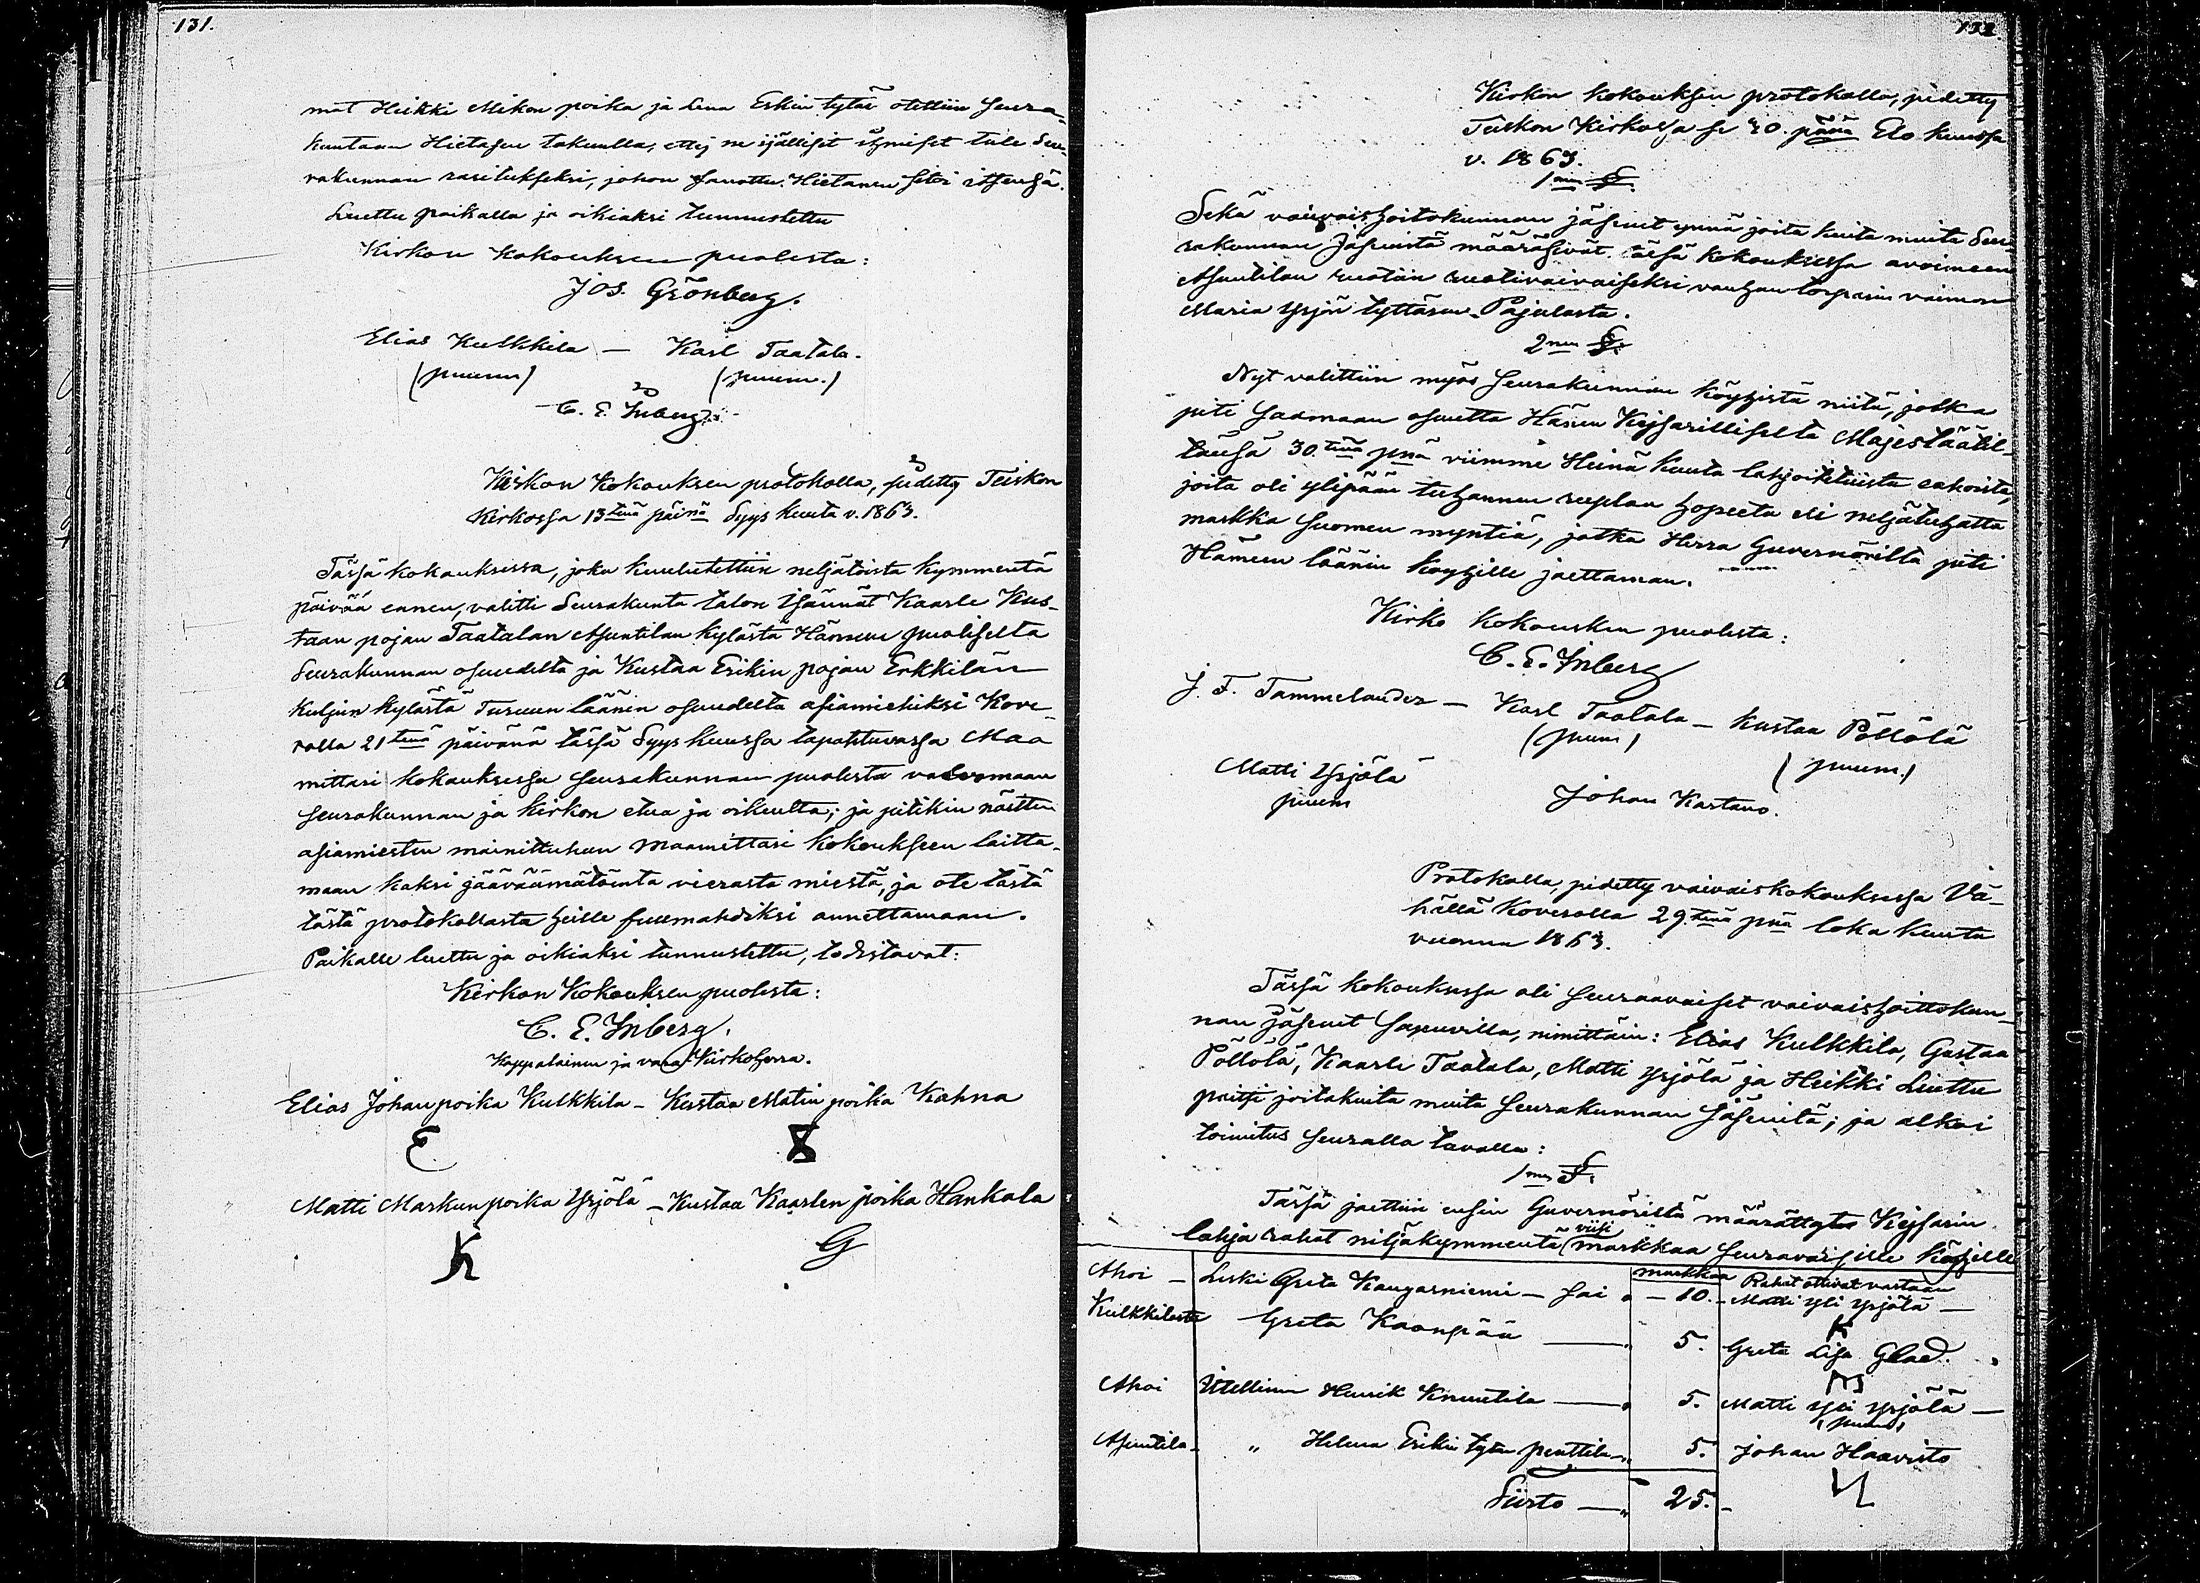 131.
mät Heikki Mikon poika ja Lena Eskin tytär otettiin Seura-
kuntaan Hietasen takuulla, ettej ne ijälliset ihmiset tule Seu-
rakunnan rasitukseksi, johon sanottu Hietanen sitoi itsensä.
Luettu paikalla ja oikiaksi tunnustettu
Kirkon Kokouksen puolesta:
Jos. Grönberg.
Elias Kulkkila — Karl Taatala.
(puum) (puum.)
C. E. Inberg
Kirkon Kokouksen protokolla, pidetty Teiskon
Kirkossa 13tenä päinä Syys kuuta v. 1863.
Tässä kokouksessa, joka kuulutettiin neljätoista kymmentä
päivää ennen, valitti Seurakunta talon Isännät Kaarle Kus-
taan pojan Taatalan Asuntilan kylästä Hämeen puoliselta
Seurakunnan osuudelta ja Kustaa Erikin pojan Erkkilän
Kuljun kylästä Turuun läänin osuudelta asiamiehiksi Kove-
rolla 21tenä päivänä tässä Syys kuussa tapahtuvassa Maa
mittari kokouksessa seurakunnan puolesta valvomaan
seurakunnan ja kirkon etua ja oikeutta; ja pitikin näitten
asiamiesten mainittuhun maamittari kokoukseen laitta-
maan kaksi jääväämätöintä vierasta miestä, ja ote tästä
tästä protokollasta heille fullmahdiksi annettamaan.
Paikalle luettu ja oikiaksi tunnustettu, todistavat:
Kirkon Kokouksen puolesta:
C. E. Inberg.
Kappalainen ja vara Kirkoherra.
Elias Johan poika Kulkkila — Kustaa Matin poika Kahna
E
Matti Markun poika Yrjölä — Kustaa Kaarlen poika Hankala
K G
132.
Kirkon kokouksen protokolla, pidetty
Teiskon Kirkossa se 30. pänä Elo kuussa
v. 1863.
1nen §.
Sekä vaivaishoitokunnan jäsenet ynnä joita kuita muita Seu-
rakunnan Jäsenistä määräsivät täsä kokouksessa avoimeen
Asuntilan ruotiin ruotivaivaiseksi vanhan torparin vaimon
Maria Yrjön tyttären Pajulasta.
2nen §.
Nyt valittiin myös Seurakunnan köyhistä niitä, jotka
piti saamaan osuutta Hänen Kejsarilliselta Majestäätil-
tänsä 30.tenä pnä viimme Heinä kuuta lahjoitetuista rahoista,
joita oli ylipään tuhannen ruplan hopeeta eli neljätuhatta
markka Suomen myntiä, jotka Herra Guvernöriltä piti
Hämeen läänin köyhille jaettaman.
Kirko kokousken puolesta:
C. E. Inberg
J. F. Tammelander — Karl Taatala — Kustaa Pöllölä
(puum) (puum.)
Matti Yrjölä
puum Johan Kartano.
Protokolla, pidetty vaivaiskokouksessa Vä-
hällä Koverolla 29.tenä pnä loka kuuta
vuonna 1863.
Tässä kokouksessa oli seuraavaiset vaivaishoittokun-
nan jäsenet sapuvilla, nimittäin: Elias Kulkkila, Gustaa
Pöllölä, Kaarle Taatala, Matti Yrjölä ja Heikki Liuttu
paitsi joitakuita muita seurakunnan jäsenitä; ja alkoi
toimitus seuralla tavalla:
1nen §.
Tässä jaettiin ensin Guvernöriltä määrättytos Kejsarin
lahja rahat neljäkymmentä viisi markkaa seuravaisille köyhille
markkaa Rahat ottivat vastaan
Ahoi — Leski Greta Kangasniemi — sai „ — 10. — Matti yli Yrjölä —
K
Kulkkilasta Greta Kaonpää — „ 5. Greta Lisa Glad.
Ahoi Itellinen Henrik Knuutila — „ 5. Matti yli Yrjölä —
(puum)
Asuntila — „ Helena Erikin tytär penttilä — „ 5. Johan Haavisto
Siirto — „ 25. —